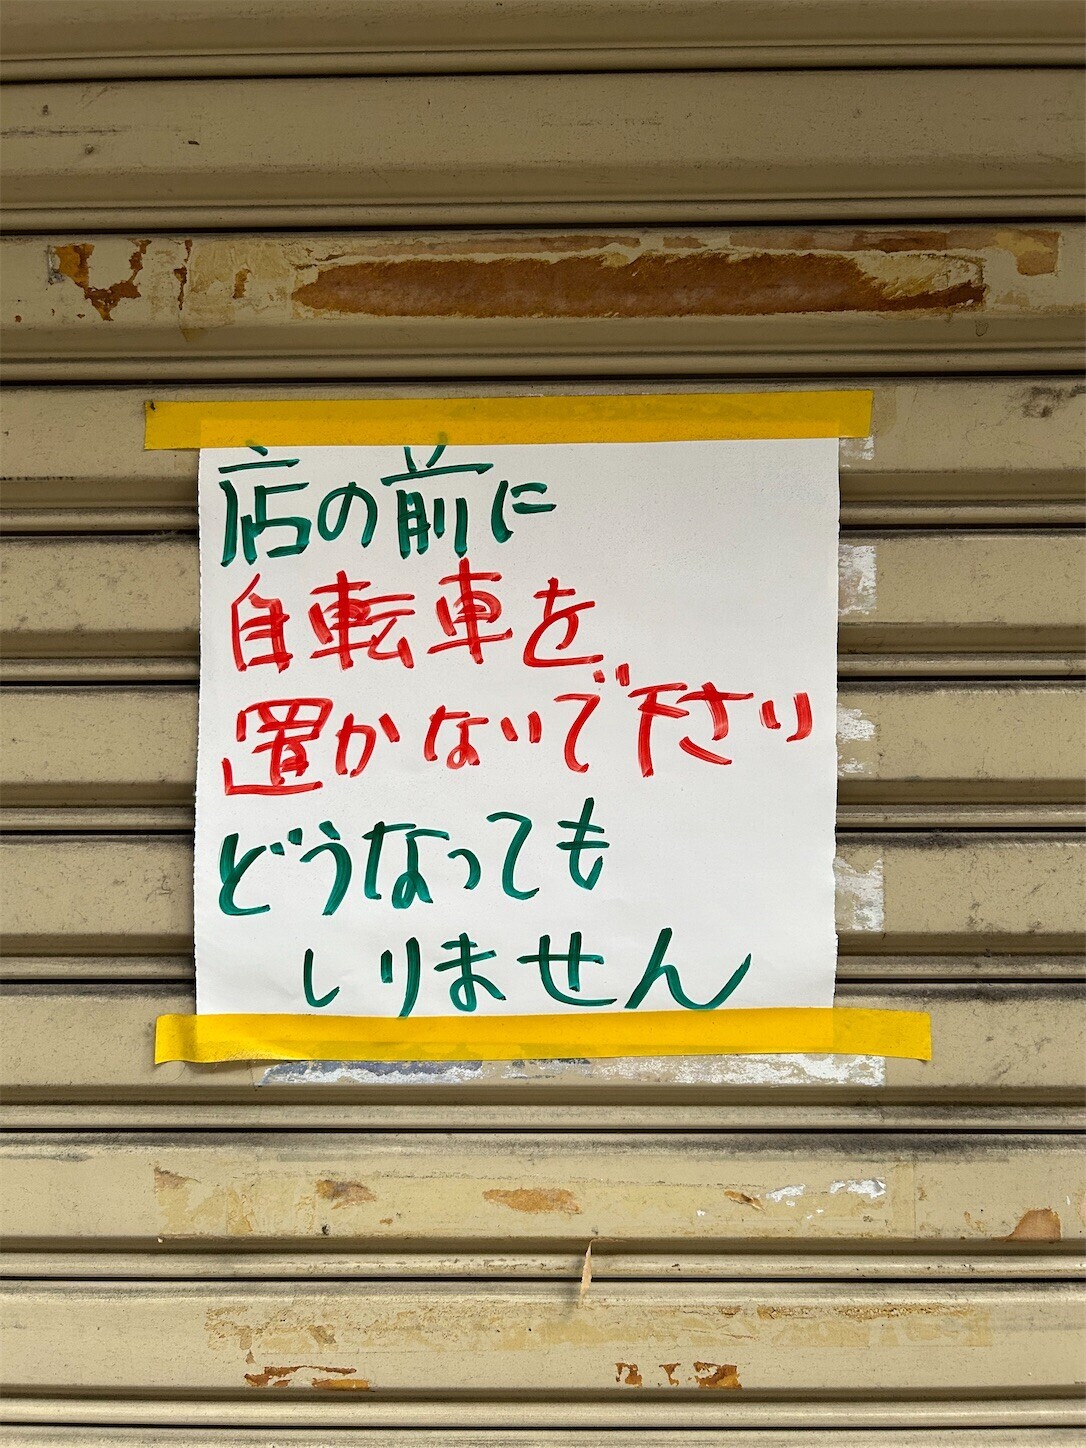 店の前に
自転車を
置かないで下さい
どうなっても
しりません